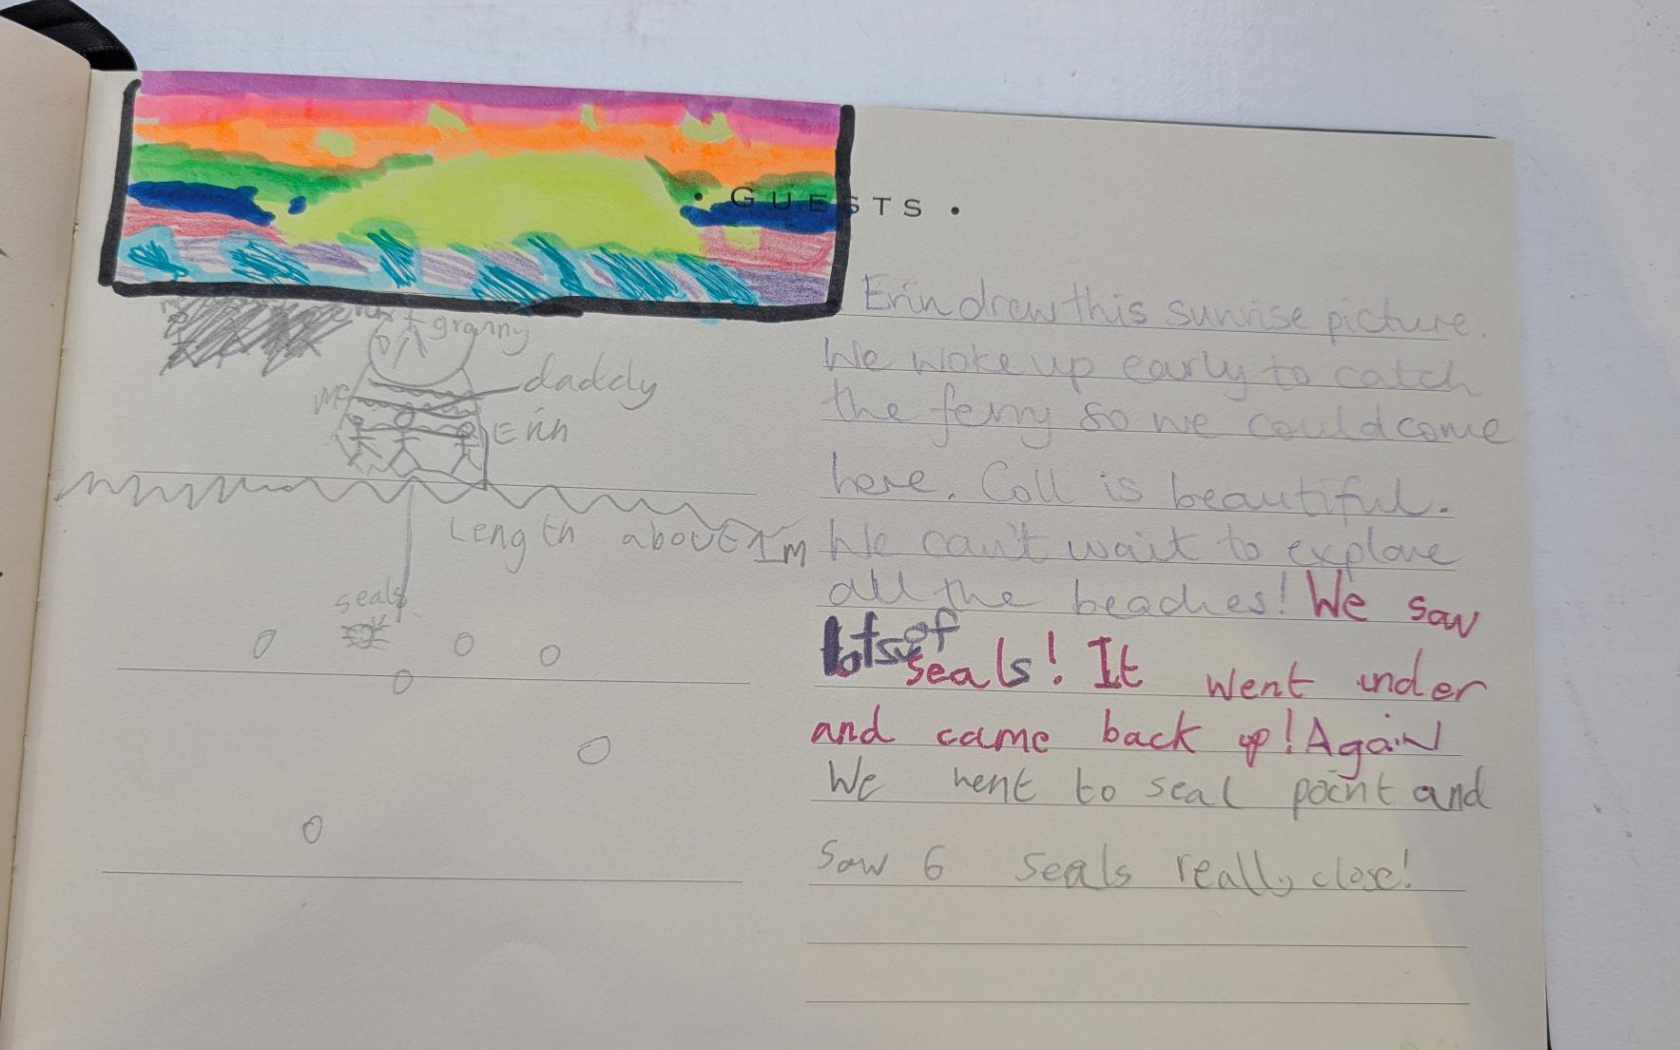 • GUESTS •
Erin drew this sunrise picture.
We woke up early to catch
the ferry so we could come
here. Coll is beautiful.
We can't wait to explore
all the beaches! We saw
lots of seals! It went under
and came back up! Again
We went to seal point and
saw 6 seals really close!
granny
daddy
me
Erin
Length about 1m
seals